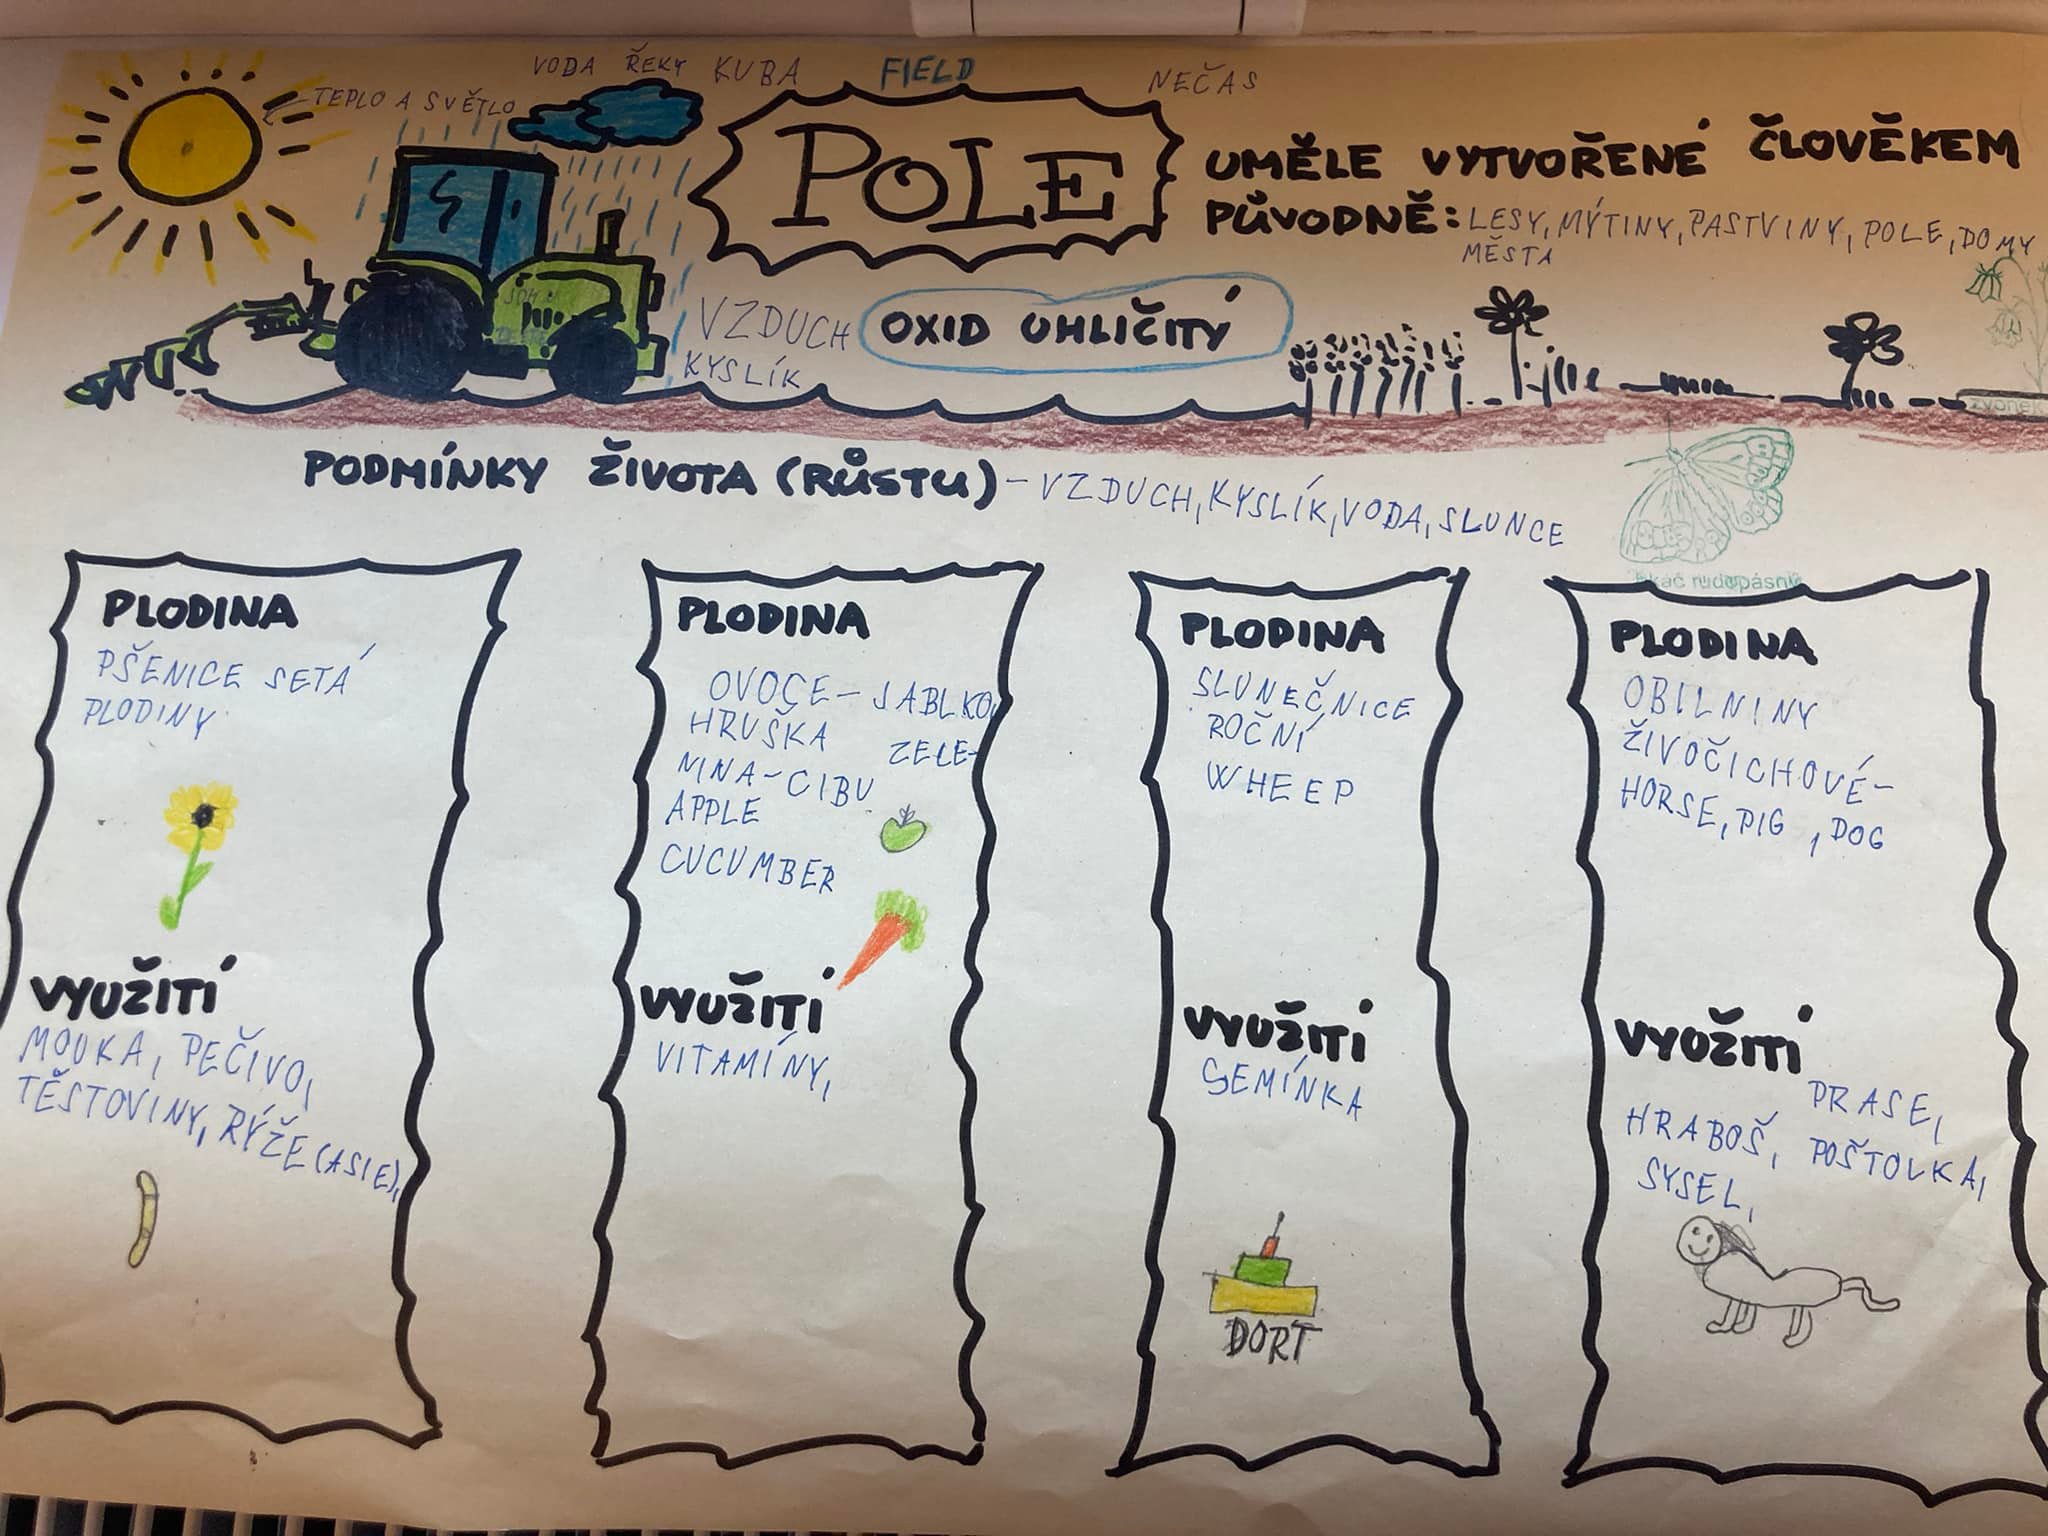 VODA ŘEKY KUBA FIELD NEČAS
TEPLO A SVĚTLO
POLE
UMĚLE VYTVOŘENÉ ČLOVĚKEM
PŮVODNĚ: LESY, MÝTINY, PASTVINY, POLE, DOMY
MĚSTA
VZDUCH OXID UHLIČITÝ
KYSLÍK
zvonek
PODMÍNKY ŽIVOTA (RŮSTU) - VZDUCH, KYSLÍK, VODA, SLUNCE
PLODINA
PŠENICE SETÁ
PLODINY
VYUŽITÍ
MOUKA, PEČIVO,
TĚSTOVINY, RÝŽE (ASIE),
PLODINA
OVOCE - JABLKO,
HRUŠKA ZELE-
NINA - CIBU
APPLE
CUCUMBER
VYUŽITÍ
VITAMÍNY,
PLODINA
SLUNEČNICE
ROČNÍ
WHEEP
VYUŽITÍ
SEMÍNKA
DORT
PLODINA
OBILNINY
ŽIVOČICHOVÉ-
HORSE, PIG , DOG
VYUŽITÍ
PRASE,
HRABOŠ, POŠTOLKA,
SYSEL,